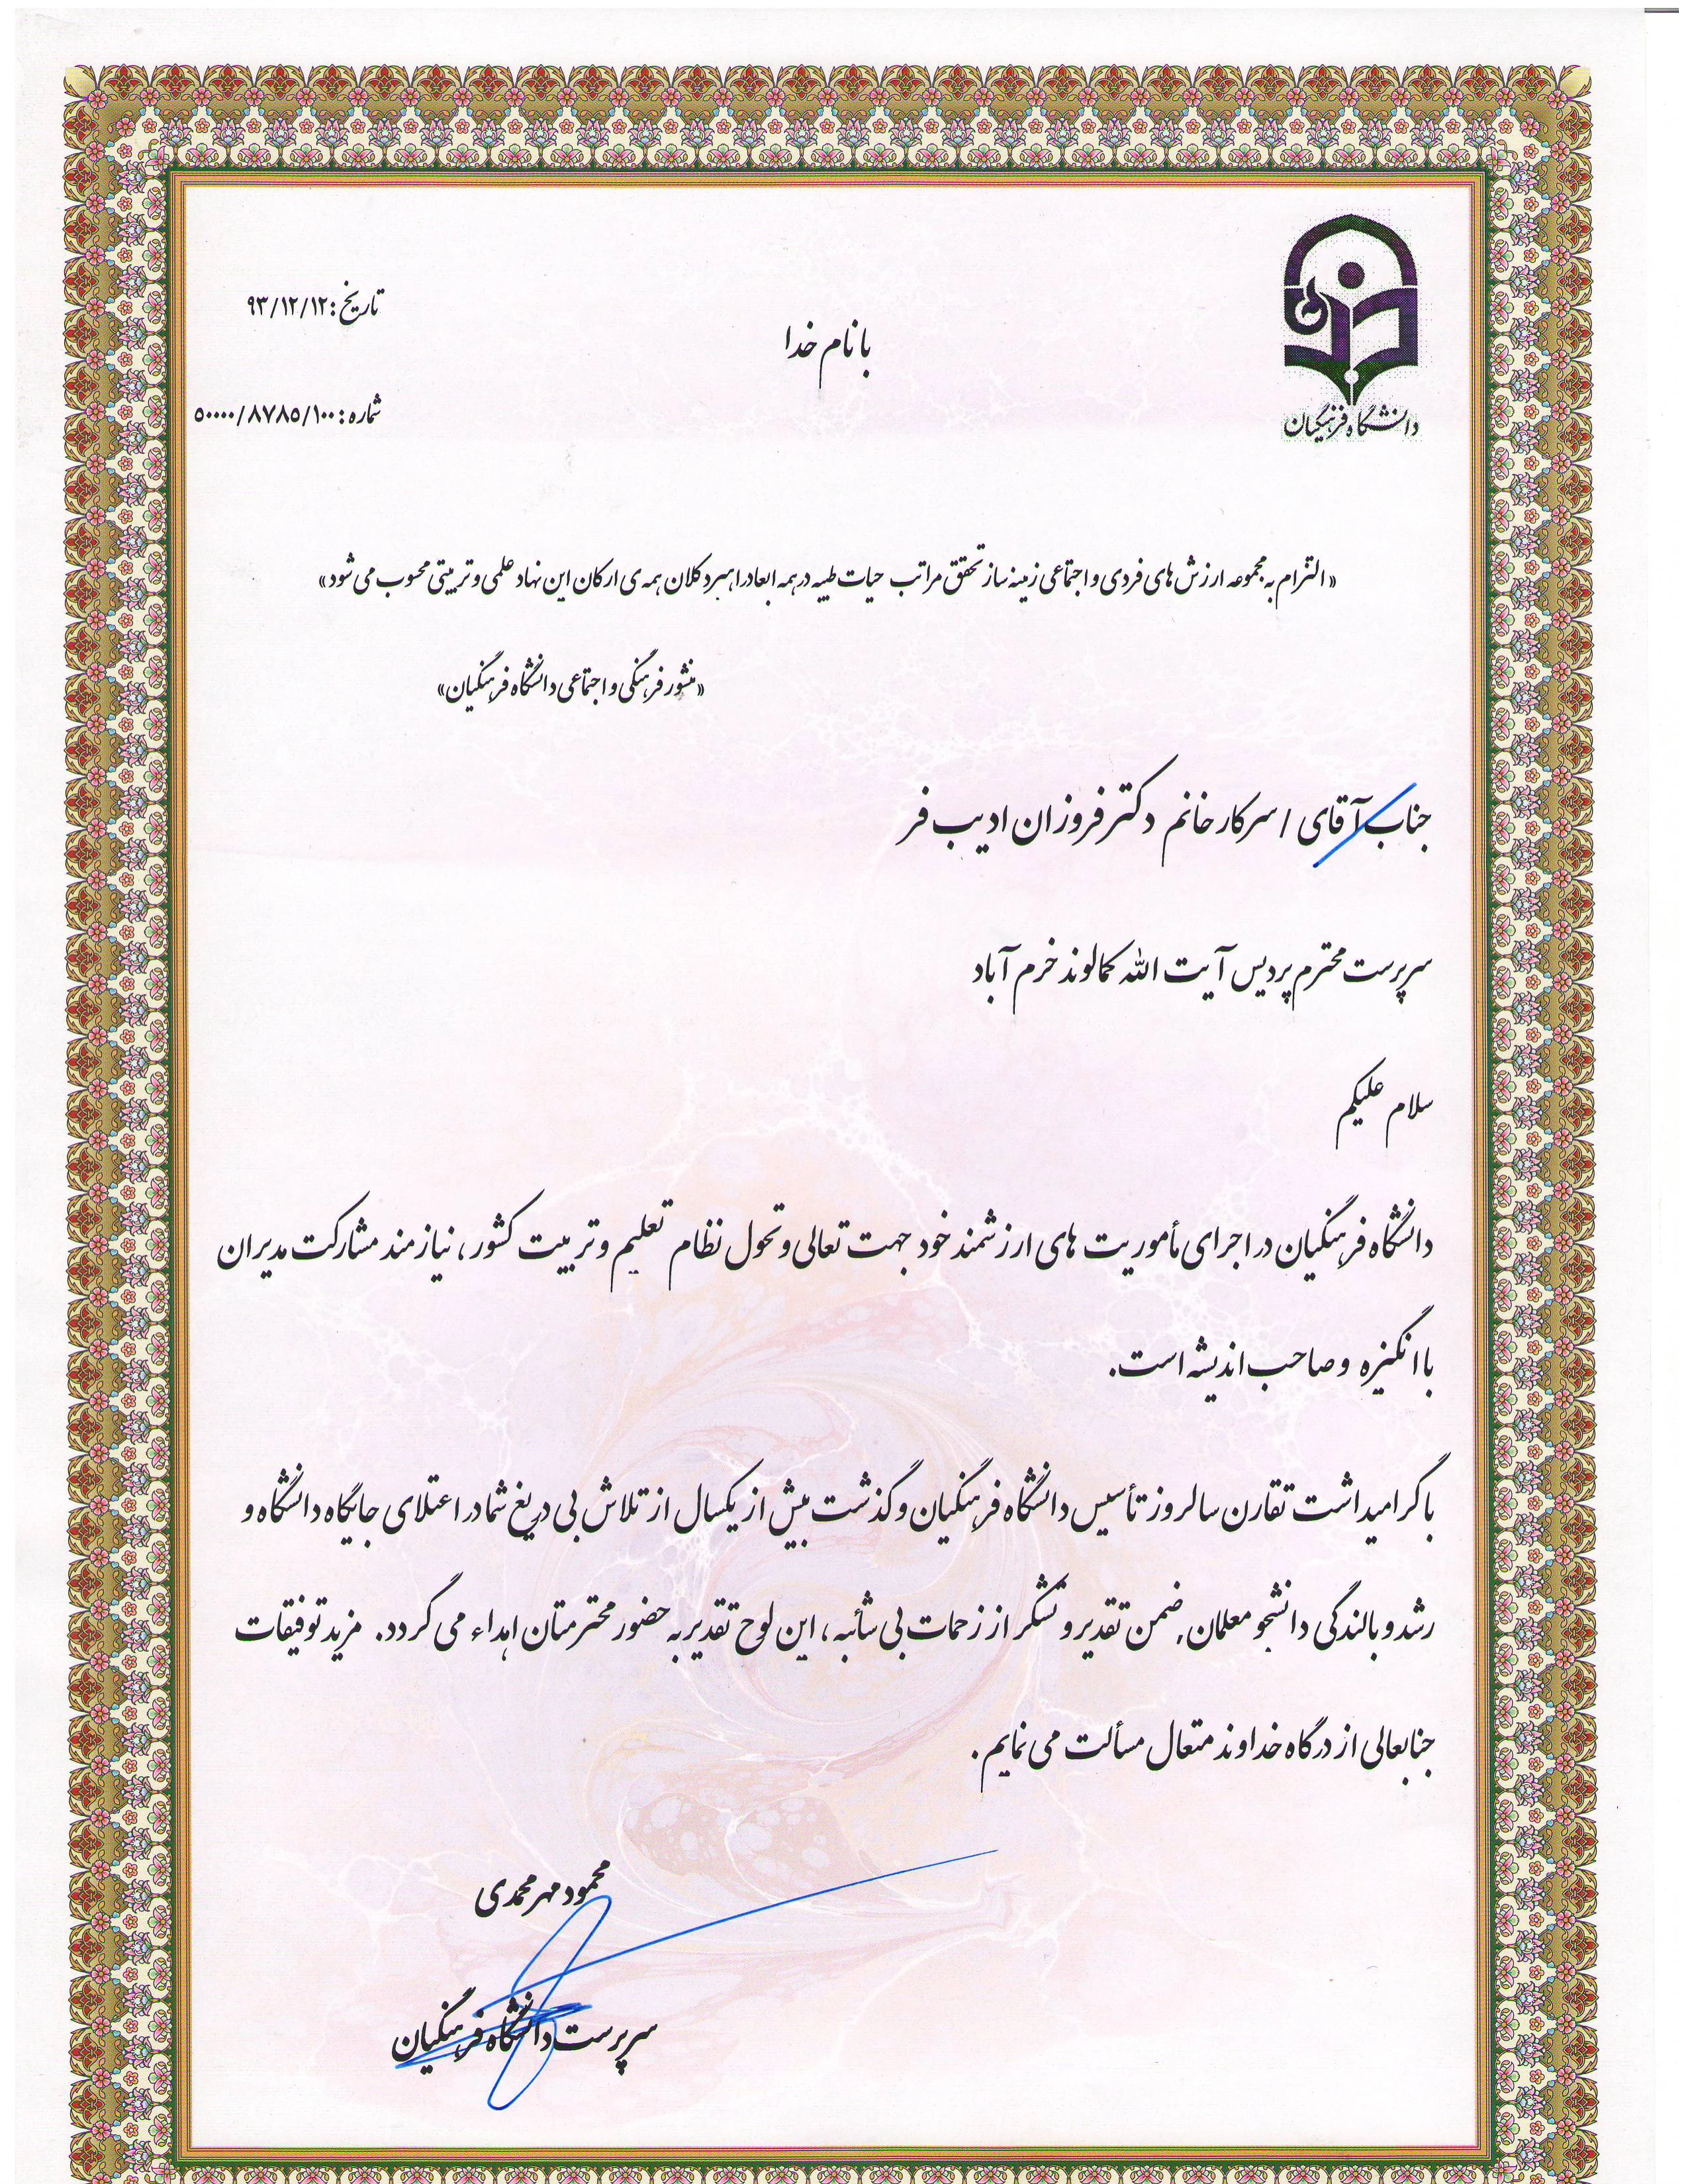 دانشگاه فرهنگیان
تاریخ: ۹۳/۱۲/۱۲
با نام خدا
شماره: ۵۰۰۰۰/۸۷۸۵/۱۰۰
« التزام به مجموعه ارزش های فردی و اجتماعی زمینه ساز تحقق مراتب حیات طیبه در همه ابعاد راهبرد کلان همه ی ارکان این نهاد علمی و تربیتی محسوب می شود»
«منشور فرهنگی و اجتماعی دانشگاه فرهنگیان»
جناب آقای / سرکار خانم دکتر فروزان ادیب فر
سرپرست محترم پردیس آیت الله کمالوند خرم آباد
سلام علیکم
دانشگاه فرهنگیان در اجرای مأموریت های ارزشمند خود جهت تعالی و تحول نظام تعلیم و تربیت کشور، نیازمند مشارکت مدیران
با انگیزه و صاحب اندیشه است.
با گرامیداشت تقارن سالروز تأسیس دانشگاه فرهنگیان و گذشت بیش از یکسال از تلاش بی دریغ شما در اعتلای جایگاه دانشگاه و
رشد و بالندگی دانشجو معلمان, ضمن تقدیر و تشکر از زحمات بی شائبه، این لوح تقدیر به حضور محترمتان اهداء می گردد. مزید توفیقات
جنابعالی از درگاه خداوند متعال مسألت می نمایم.
محمود مهرمحمدی
سرپرست دانشگاه فرهنگیان